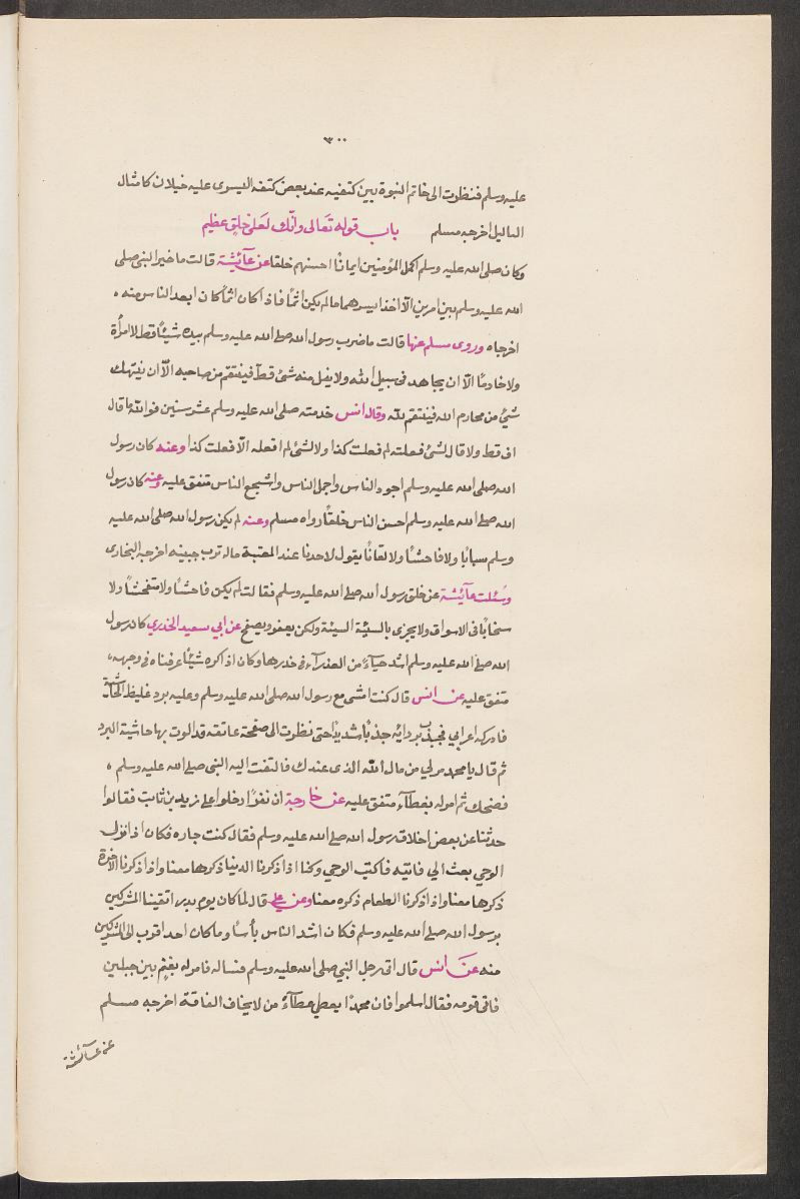 ٣٠٠
عليه وسلم فنظرت الى خاتم النبوة بين كتفيه عند بعض كتفه اليسرى عليه خيلان كامثال
الثاليل اخرجه مسلم باب قوله تعالى وانّك لعلى خلق عظيم
وكان صلى الله عليه وسلم اكمل المؤمنين ايمانًا احسنهم خلقا عن عآئشة قالت ما خير النبى صلى
الله عليه وسلم بين امرين الّا اخذ ايسرهما ما لم يكن اثمًا فاذا كان اثمًا كان ابعد الناس منه ،
اخرجاه وروى مسلم عنها قالت ما ضرب رسول الله صلى الله عليه وسلم بيده شيئًا قط لا امرأة
ولا خادمًا الّا ان يجاهد فى سبيل الله ولا نيل منه شئ قطّ فينتقم من صاحبه الّا ان ينتهك
شئ من محارم الله فينتقم لله وقال انس خدمته صلى الله عليه وسلم عشر سنين فوالله ما قال
اف قط ولا قال لشئ فعلته لم فعلت كذا ولا لشئ لم افعله الّا فعلت كذا وعنه كان رسول
الله صلى الله عليه وسلم اجود الناس واجمل الناس واشجع الناس متفق عليه وعنه كان رسول
الله صلى الله عليه وسلم احسن الناس خلقًا رواه مسلم وعنه لم يكن رسول الله صلى الله عليه
وسلم سبابًا ولا فاحشًا ولا لعانًا يقول لاحدنا عند المعتبة ماله ترب جبينه اخرجه البخارى
وسُئلت عآئشة عن خلق رسول الله صلى الله عليه وسلم فقالت لم يكن فاحشًا ولا متفحشًا ولا
سخابًا فى الاسواق ولا يجزى بالسيئة السيئة ولكن يعفو ويصفح عن ابي سعيد الخدري كان رسول
الله صلى الله عليه وسلم اشد حيآءً من العذرآء فى خدرها وكان اذا كره شيئًا عرفناه فى وجهه ،
متفق عليه عن انس قال كنت امشى مع رسول الله صلى الله عليه وسلم وعليه برد غليظ الحاشية
فادركه اعرابي فجبذه بردائه جبذًا شديدًا حتى نظرت الى صفحة عاتقه قد الوت بها حاشية البرد
ثم قال يا محمد مر لي من مال الله الذى عندك فالتفت اليه النبى صلى الله عليه وسلم ،
فضحك ثم امر له بعطآء متفق عليه عن خارجة ان نفرًا دخلوا على زيد بن ثابت فقالوا
حدثنا عن بعض اخلاق رسول الله صلى الله عليه وسلم فقال كنت جاره فكان اذا نزل
الوحي بعث الي فاتيه فاكتب الوحي وكنا اذا ذكرنا الدنيا ذكرها معنا واذا ذكرنا الآخرة
ذكرها معنا واذا ذكرنا الطعام ذكره معنا وعن على قال لما كان يوم بدر اتقينا المشركين
برسول الله صلى الله عليه وسلم فكان اشد الناس بأسًا وما كان احد اقرب الى المشركين
منه عن انس قال اتى رجل النبي صلى الله عليه وسلم فساله فامر له بغنم بين جبلين
فاتى قومه فقال اسلموا فان محمدًا يعطي عطآءً من لا يخاف الفاقة اخرجه مسلم
عن عآئشة